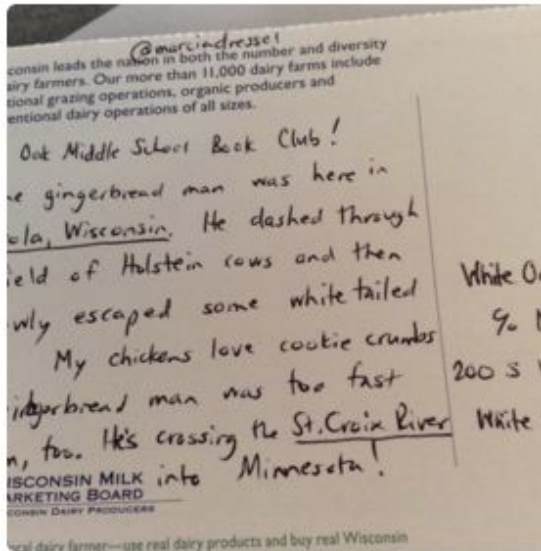 @marciadressel
consin leads the nation in both the number and diversity
airy farmers. Our more than 11,000 dairy farms include
tional grazing operations, organic producers and
entional dairy operations of all sizes.
Oak Middle School Book Club!
e gingerbread man was here in
ola, Wisconsin. He dashed through
ield of Holstein cows and then
wly escaped some white tailed
My chickens love cookie crumbs
ingerbread man was too fast
m, too. He's crossing the St. Croix River
into Minnesota!
White O
c/o
200 S
White
ISCONSIN MILK
ARKETING BOARD
CONSIN DAIRY PRODUCERS
ocal dairy farmer—use real dairy products and buy real Wisconsin